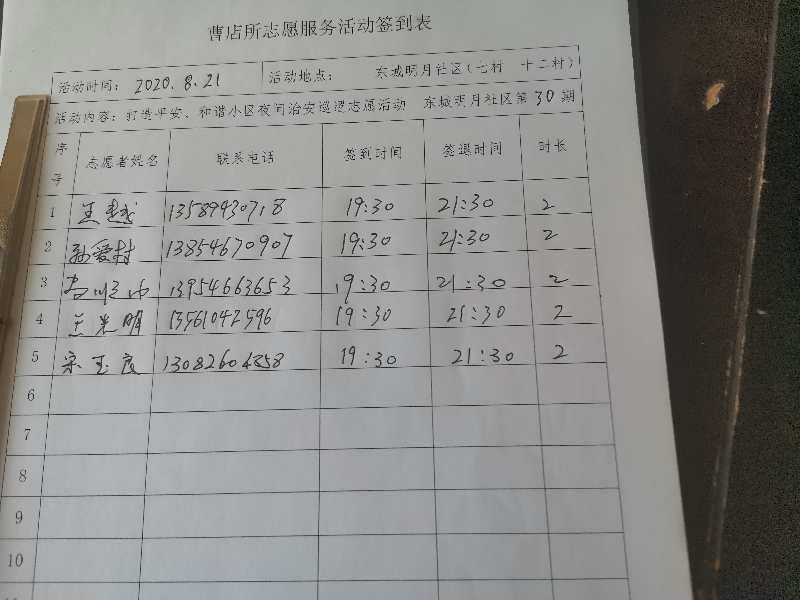 曹店所志愿服务活动签到表
活动时间: 2020.8.21 活动地点: 东城明月社区(七村 十二村)
活动内容: 打造平安、和谐小区夜间治安巡逻志愿活动 东城明月社区第30期
序号 志愿者姓名 联系电话 签到时间 签退时间 时长
1 王越 13589430718 19:30 21:30 2
2 孙爱村 13854670907 19:30 21:30 2
3 13954663653 19:30 21:30 2
4 王光明 13561042596 19:30 21:30 2
5 宋玉良 13082604858 19:30 21:30 2
6
7
8
9
10